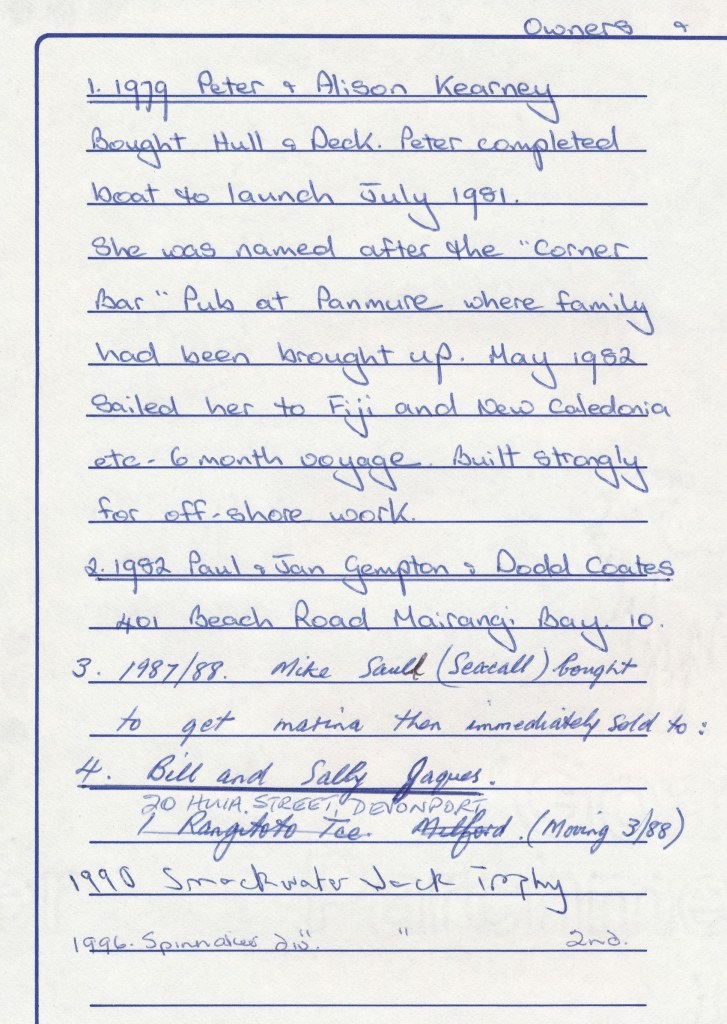 Owners &
1. 1979 Peter & Alison Kearney
Bought Hull & Deck. Peter completed
boat to launch July 1981.
She was named after the "Corner
Bar" Pub at Panmure where family
had been brought up. May 1982
Sailed her to Fiji and New Caledonia
etc - 6 month voyage. Built strongly
for off-shore work.
2. 1982 Paul & Jan Gempton & Dodd Coates
401 Beach Road Mairangi Bay. 10.
3. 1987/88. Mike Saull (Seacall) bought
to get marina then immediately sold to:
4. Bill and Sally Jaques.
20 HUIA STREET, DEVONPORT
1 Rangitoto Tce. Milford. (Moving 3/88)
1990 Smackwater Jack Trophy
1996. Spinnaker div. " 2nd.